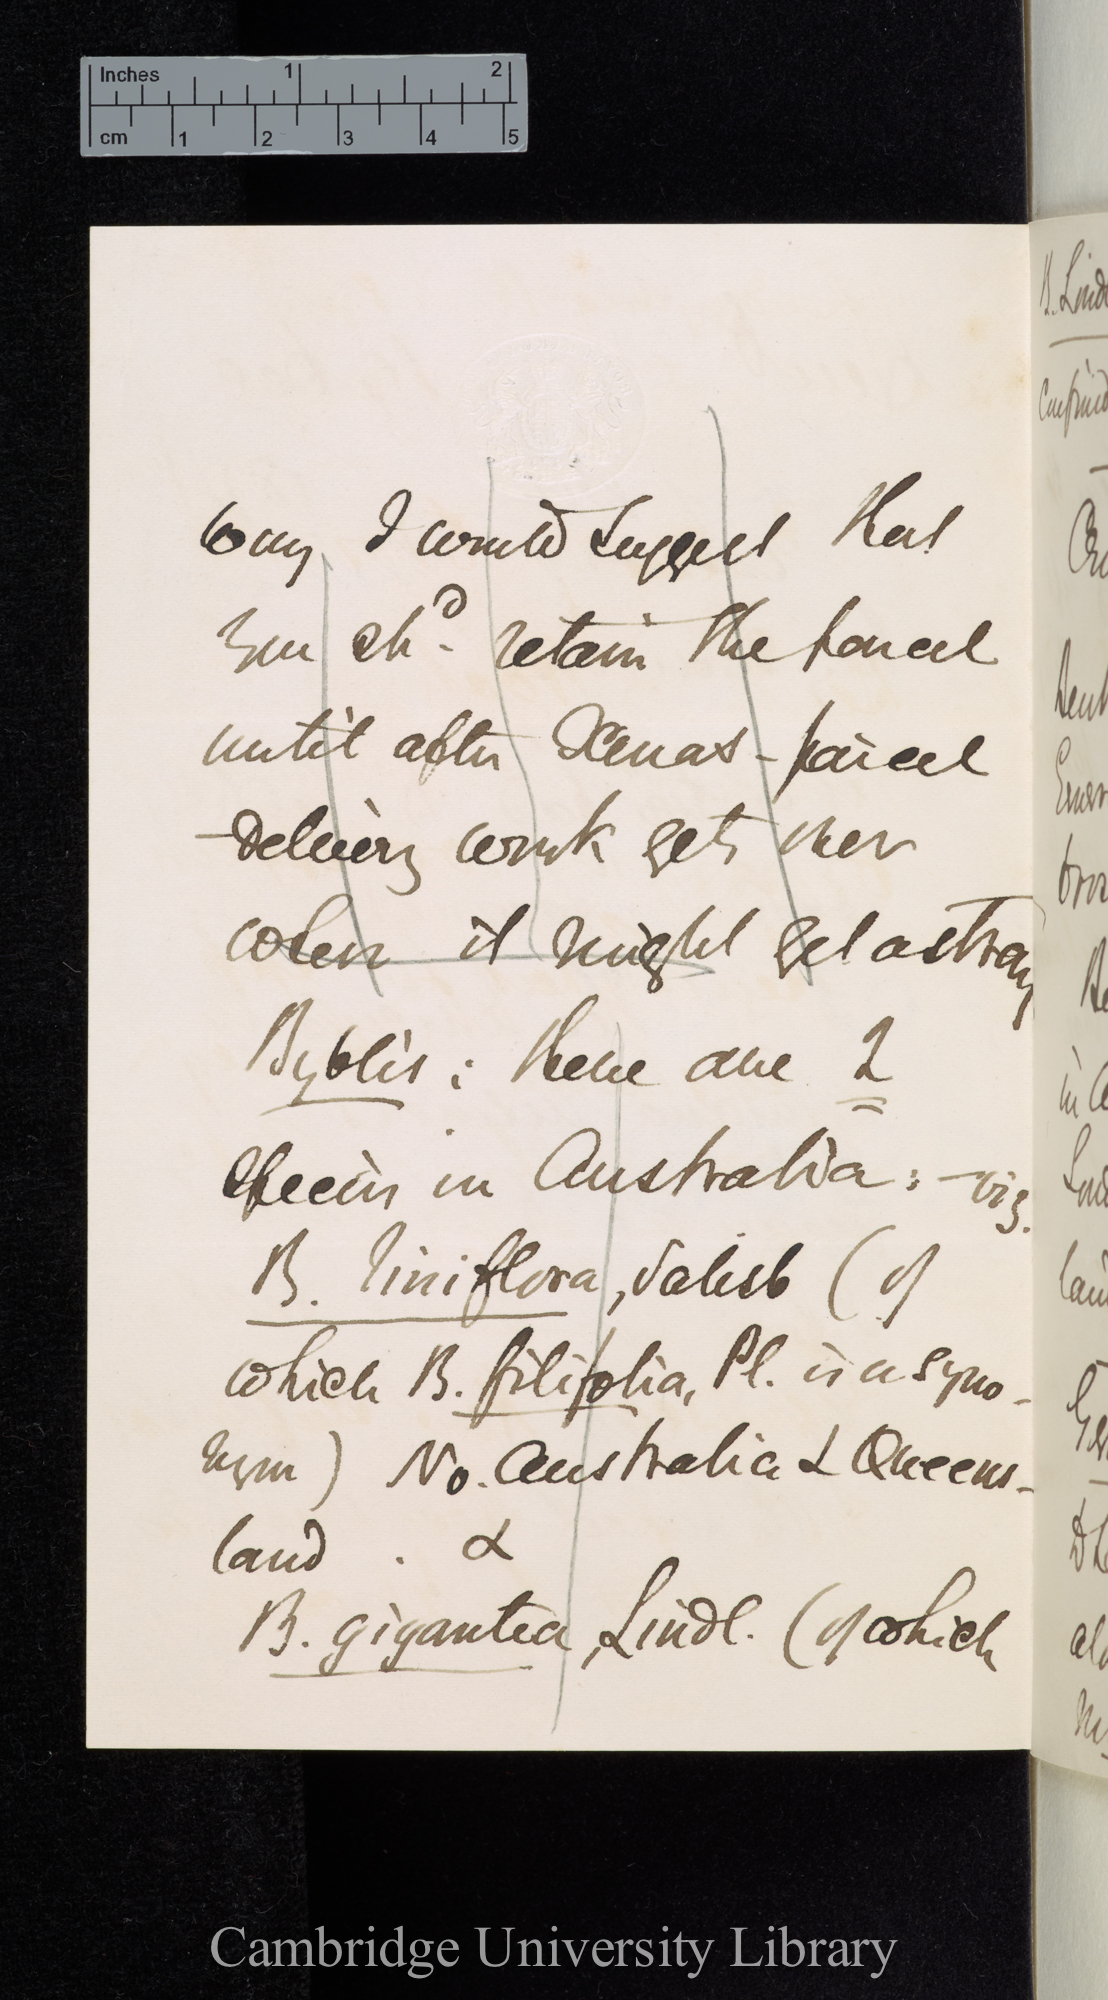 Inches 1 2
cm 1 2 3 4 5
way I would suggest that
you shd. retain the parcel
until after Xmas-parcel
-delivery work gets over
when it might get astray
Byblis: there are 2
species in Australia: - viz.
B. liniflora, Salisb (of
which B. filifolia, Pl. is a syno-
nym) No. Australia & Queens-
land . &
B. gigantea, Lindl. (of which
B. Lind
in
Cambridge University Library